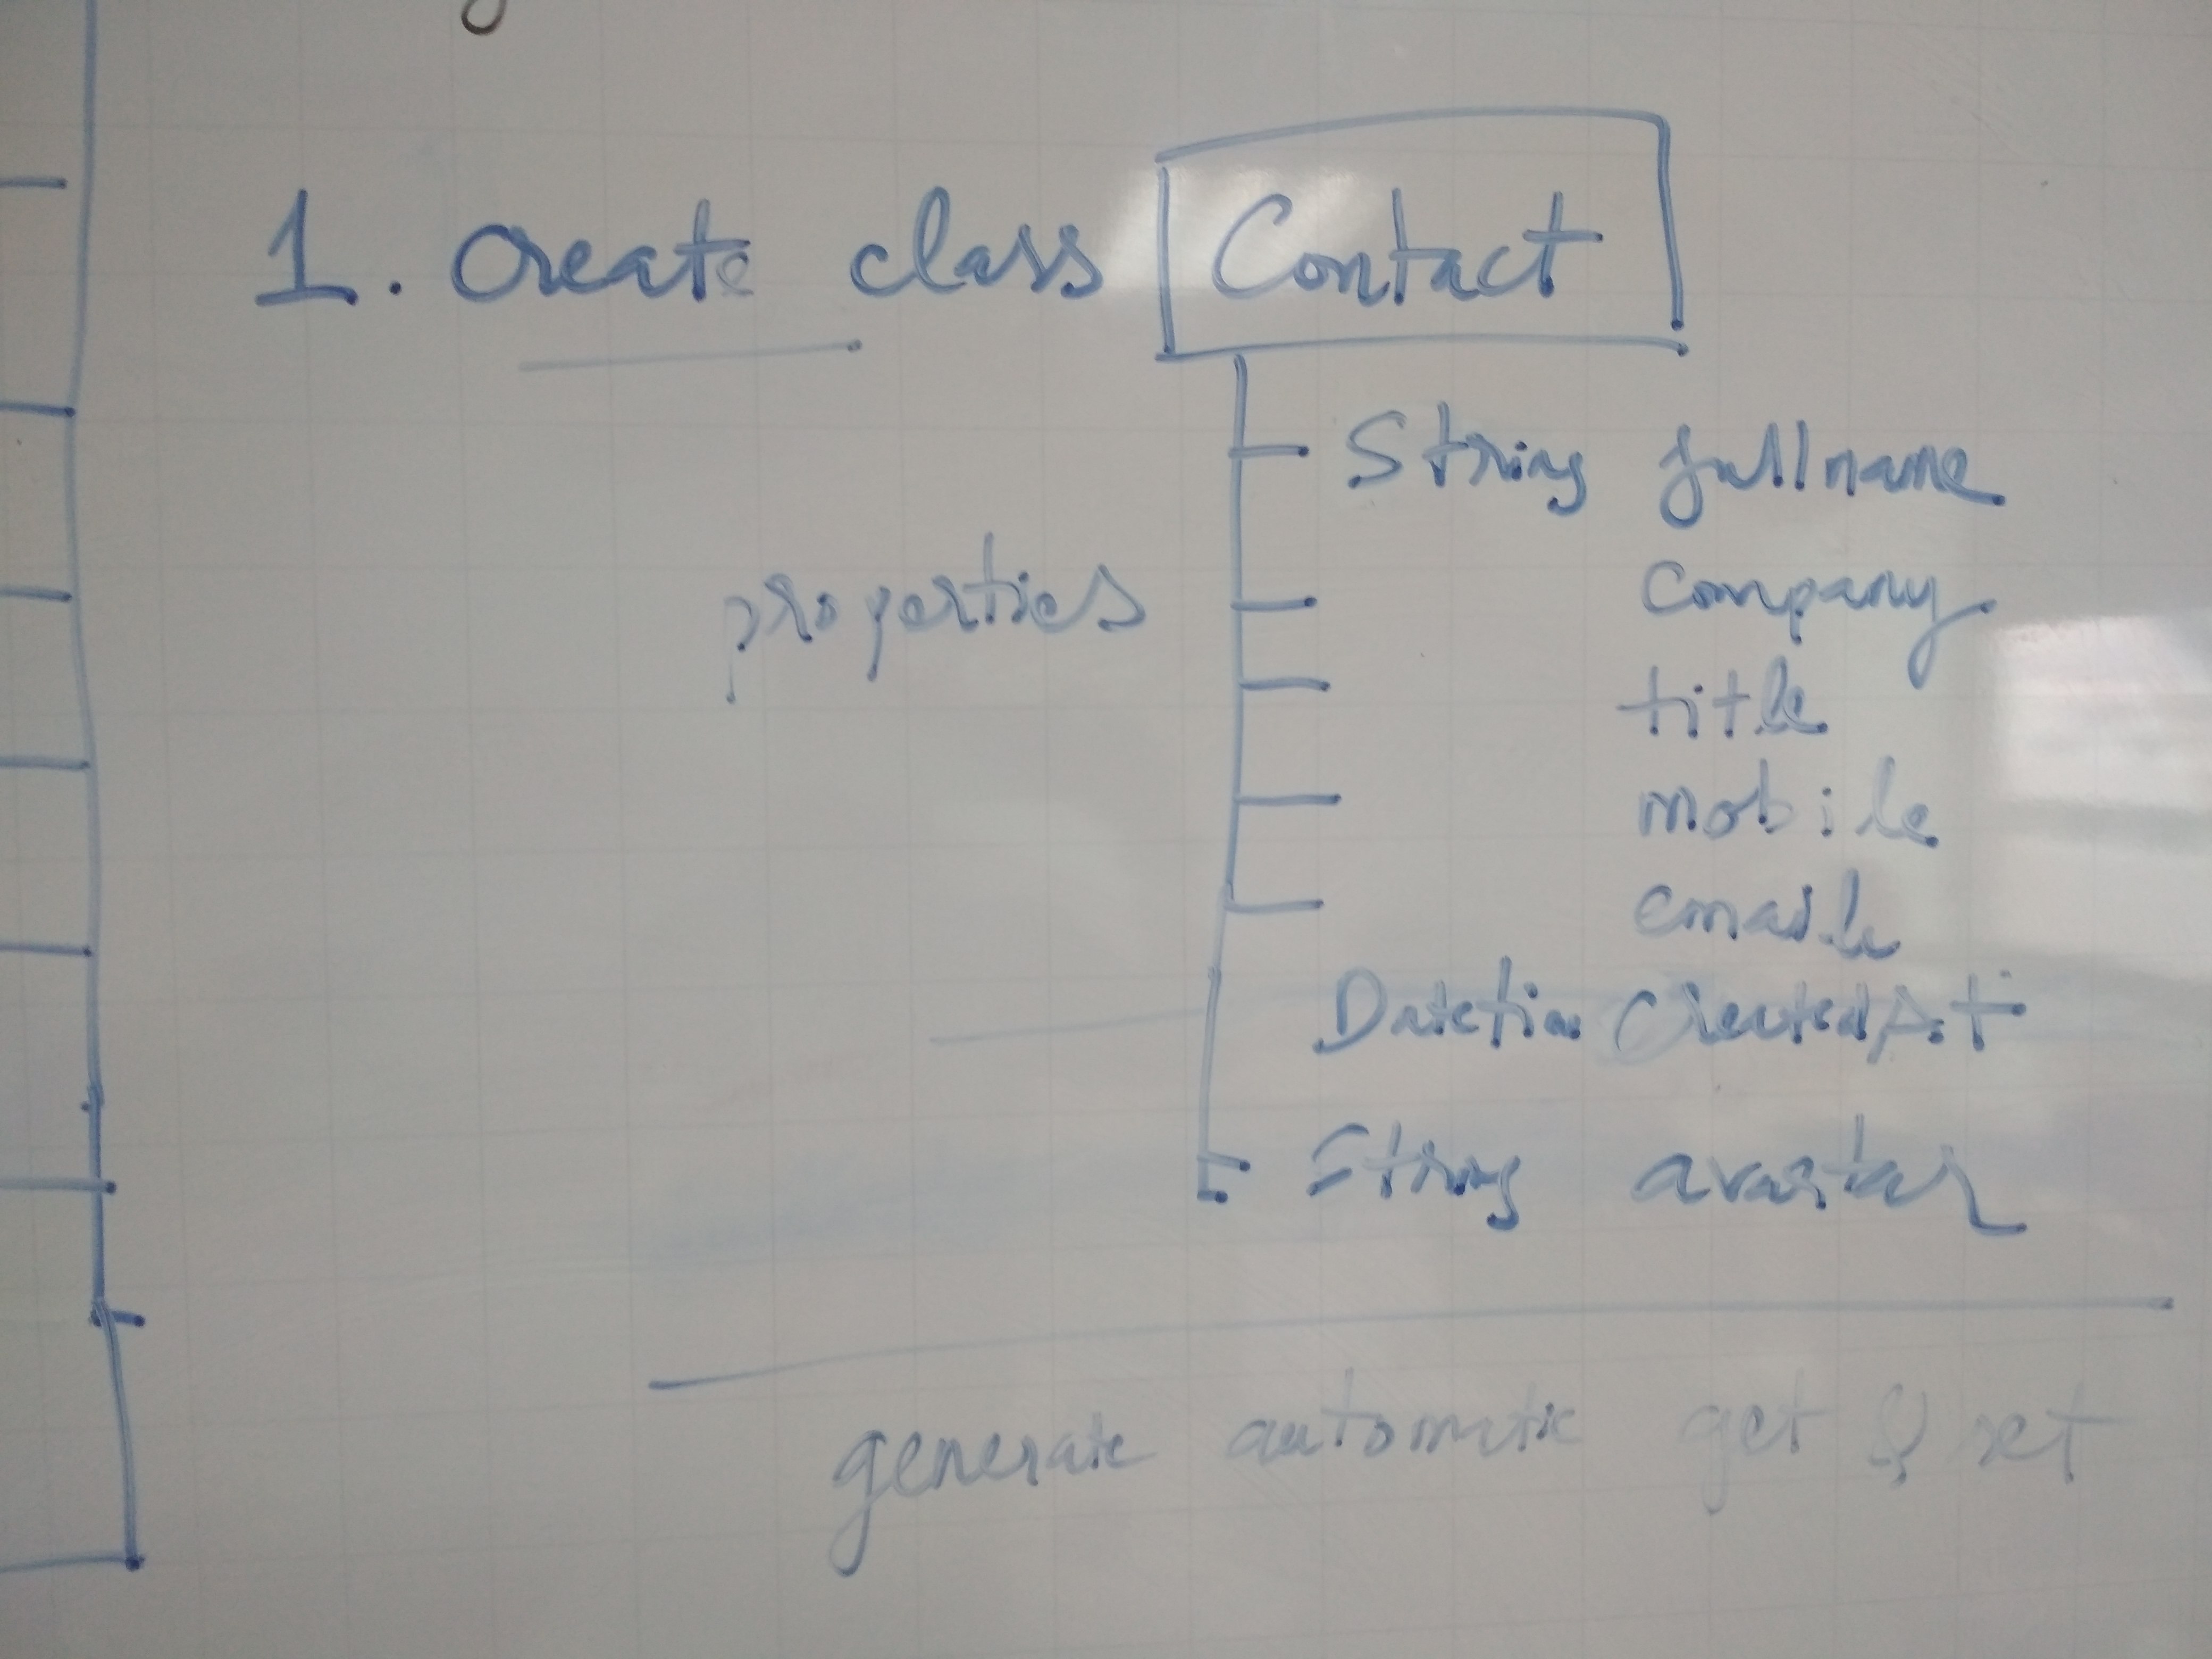 1. Create class Contact
String fullname
properties
company
title
mobile
email
Datetim CreatedAt
String avartar
generate automatic get & set